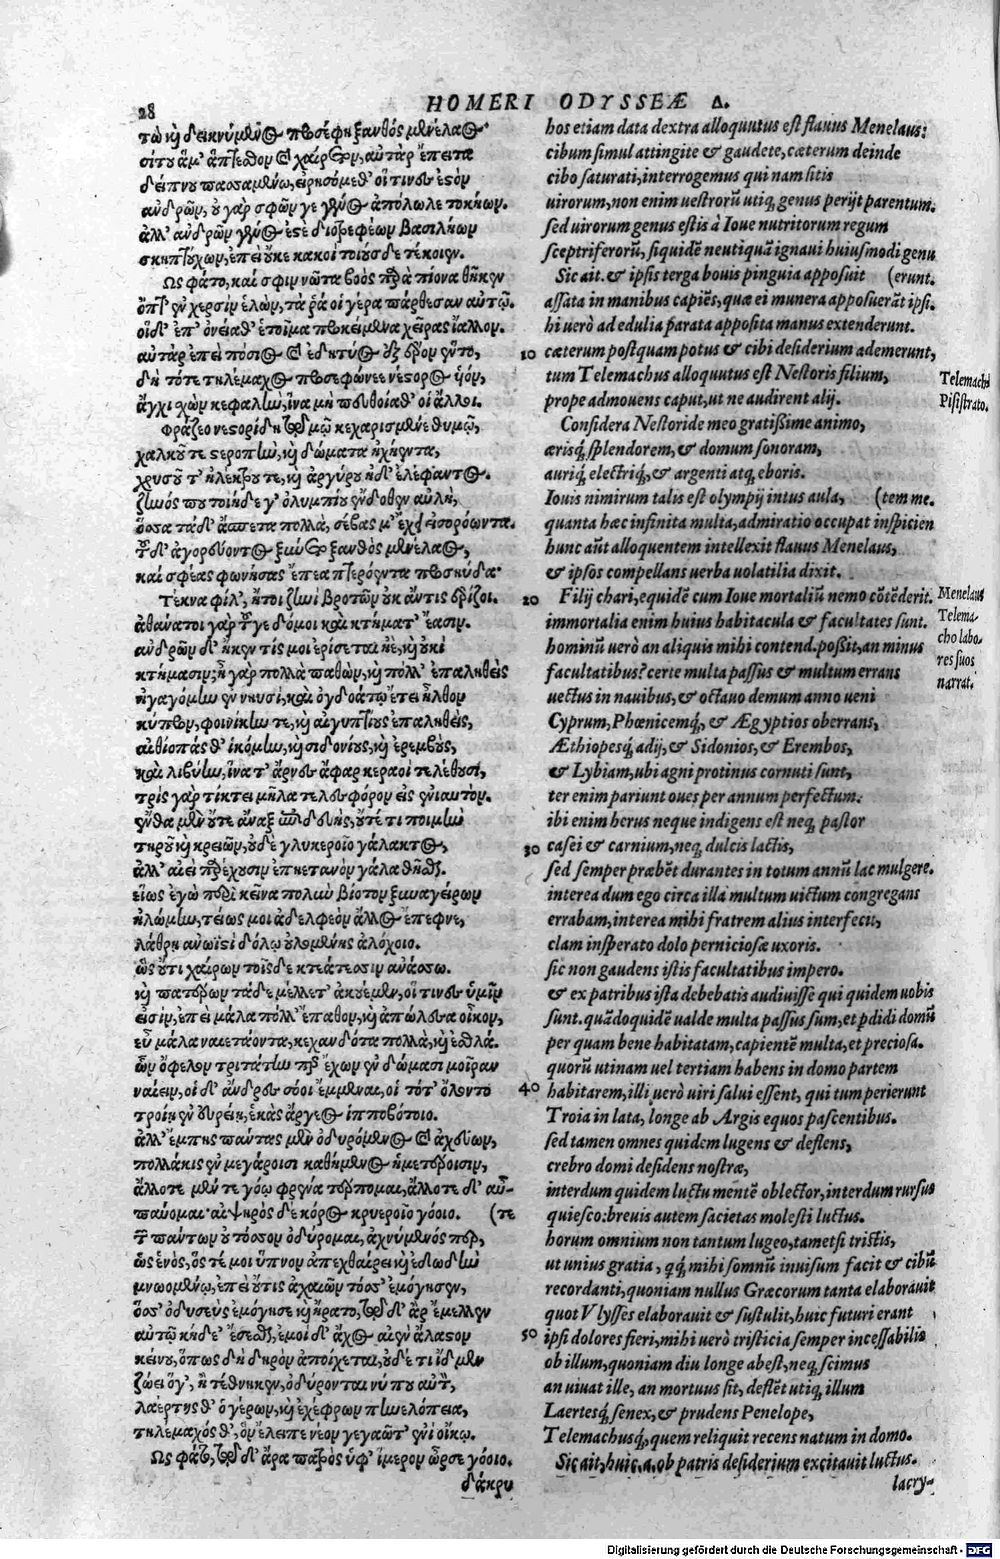 28
HOMERI ODYSSEÆ Δ.
τὼ καὶ δεικνύμενος προσέφη ξανθός μενέλαος·
σίτου ἅμ' ἅπτεσθον καὶ χαίρετον, αὐτὰρ ἔπειτα
δείπνου πασσαμένω, εἰρησόμεθ' οἵ τινες ἐστὸν
ἀνδρῶν, οὐ γὰρ σφῶν γε γένος ἀπόλωλε τοκήων.
ἀλλ' ἀνδρῶν γένος ἐστὲ διοτρεφέων βασιλήων
σκηπτούχων, ἐπεὶ οὔκε κακοὶ τοιούσδε τέκοιεν.
Ὣς φάτο, καί σφιν νῶτα βοὸς παρὰ πίονα θῆκεν
ὄπτ' ἐν χερσὶν ἑλὼν, τὰ ῥά οἱ γέρα πάρθεσαν αὐτῷ.
οἱ δ' ἐπ' ὀνείαθ' ἑτοῖμα προκείμενα χεῖρας ἴαλλον.
αὐτὰρ ἐπεὶ πόσιος καὶ ἐδητύος ἐξ ἔρον ἕντο,
δὴ τότε τηλέμαχος προσεφώνεε νέστορος υἱόν,
ἄγχι σχὼν κεφαλὴν, ἵνα μὴ πευθοίαθ' οἱ ἄλλοι.
Φράζεο νεστορίδη τῷ ἐμῷ κεχαρισμένε θυμῷ,
χαλκοῦ τε στεροπὴν, καὶ δώματα ἠχήεντα,
χρυσοῦ τ' ἠλέκτρου τε, καὶ ἀργύρου ἠδ' ἐλέφαντος.
ζηνός που τοιήδε γ' ὀλυμπίου ἔνδοθεν αὐλὴ,
ὅσσα τάδ' ἄσπετα πολλά, σέβας μ' ἔχει εἰσορόωντα.
τοῦ δ' ἀγορεύοντος ξύνετο ξανθὸς μενέλαος,
καί σφέας φωνήσας ἔπεα πτερόεντα προσηύδα·
Τέκνα φίλ', ἤτοι ζηνὶ βροτῶν οὐκ ἄντις ἐρίζοι.
ἀθάνατοι γὰρ τοῦγε δόμοι καὶ κτήματ' ἔασιν.
ἀνδρῶν δ' ἤκεν τίς μοι ἐρίσεται ἠὲ, καὶ οὐκὶ
κτήμασιν; ἦ γὰρ πολλὰ παθὼν, καὶ πόλλ' ἐπαληθεὶς
ἠγαγόμην ἐν νηυσὶ, καὶ ὀγδοάτῳ ἔτει ἦλθον
κύπρον, φοινίκην τε, καὶ αἰγυπτίους ἐπαληθείς,
αἰθίοπάς θ' ἱκόμην, καὶ σιδονίους, καὶ ἐρεμβοὺς,
καὶ λιβύην, ἵνα τ' ἄρνες ἄφαρ κεραοὶ τελέθουσι,
τρὶς γὰρ τίκτει μῆλα τελεσφόρον εἰς ἐνιαυτόν.
ἔνθα μὲν οὔτε ἄναξ ἐπιδευὴς, οὔτέ τι ποιμὴν
τυροῦ καὶ κρειῶν, οὐδὲ γλυκεροῖο γάλακτος,
ἀλλ' αἰεὶ παρέχουσιν ἐπηετανὸν γάλα θῆσθαι.
εἵως ἐγὼ περὶ κεῖνα πολὺν βίοτον ξυναγείρων
ἠλώμην, τέως μοι ἀδελφεὸν ἄλλος ἔπεφνε,
λάθρη ἀνωϊστὶ δόλῳ οὐλομένης ἀλόχοιο.
ὣς οὔτι χαίρων τοῖσδε κτεάτεσσιν ἀνάσσω.
καὶ πατέρων τάδε μέλλετ' ἀκουέμεν, οἵ τινες ὑμῖν
εἰσίν, ἐπεὶ μάλα πόλλ' ἔπαθον, καὶ ἀπώλεσα οἶκον,
εὖ μάλα ναιετάοντα, κεχανδότα πολλὰ, καὶ ἐσθλά.
ὧν ὄφελον τριτάτην περ ἔχων ἐν δώμασι μοῖραν
ναίειν, οἱ δ' ἄνδρες σόοι ἔμμεναι, οἳ τότ' ὄλοντο
τροίῃ ἐν εὐρείῃ, ἑκὰς ἄργεος ἱπποβότοιο.
ἀλλ' ἔμπης πάντας μὲν ὀδυρόμενος καὶ ἀχεύων,
πολλάκις ἐν μεγάροισι καθήμενος ἡμετέροισιν,
ἄλλοτε μέν τε γόῳ φρένα τέρπομαι, ἄλλοτε δ' αὖ-
παύομαι· αἰψηρὸς δὲ κόρος κρυεροῖο γόοιο. (τε
τῶν πάντων οὐ τόσσον ὀδύρομαι, ἀχνύμενός περ,
ὡς ἑνὸς, ὅς τέ μοι ὕπνον ἀπεχθαίρει καὶ ἐδωδὴν
μνωομένῳ, ἐπεὶ οὔτις ἀχαιῶν τόσσ' ἐμόγησεν,
ὅσσ' ὀδυσεὺς ἐμόγησε καὶ ἤρατο, τῷ δ' ἄρ' ἔμελλεν
αὐτῷ κήδε' ἔσεσθαι, ἐμοὶ δ' ἄχος αἰὲν ἄλαστον
κείνου, ὅπως δὴ δηρὸν ἀποίχεται, οὐδέ τι ἴδμεν
ζώει ὅγ', ἢ τέθνηκεν, ὀδύρονται νύ που αὐτὸν,
λαέρτης θ' ὁ γέρων, καὶ ἐχέφρων πηνελόπεια,
τηλέμαχός θ', ὃν ἔλειπε νέον γεγαῶτ' ἐνὶ οἴκῳ.
Ὣς φάτο, τῷ δ' ἄρα πατρὸς ὑφ' ἵμερον ὦρσε γόοιο.
δάκρυ
hos etiam data dextra alloquutus est flauus Menelaus:
cibum simul attingite & gaudete, cæterum deinde
cibo saturati, interrogemus qui nam sitis
uirorum, non enim uestrorũ utiq; genus perijt parentum.
sed uirorum genus estis à Ioue nutritorum regum
sceptriferorũ, siquidẽ neutiquã ignaui huiusmodi genu
Sic ait. & ipsis terga bouis pinguia apposuit (erunt.
assata in manibus capiẽs, quæ ei munera apposuerãt ipsi.
hi uerò ad edulia parata apposita manus extenderunt.
10 cæterum postquam potus & cibi desiderium ademerunt,
tum Telemachus alloquutus est Nestoris filium,
prope admouens caput, ut ne audirent alij.
Considera Nestoride meo gratißime animo,
ærisq; splendorem, & domum sonoram,
auriq; electriq;, & argenti atq; eboris.
Iouis nimirum talis est olympij intus aula, (tem me.
quanta hæc infinita multa, admiratio occupat inspicien
hunc aũt alloquentem intellexit flauus Menelaus,
& ipsos compellans uerba uolatilia dixit.
20 Filij chari, equidẽ cum Ioue mortaliũ nemo cõtẽderit.
immortalia enim huius habitacula & facultates sunt.
hominũ uerò an aliquis mihi contend. possit, an minus
facultatibus? certe multa passus & multum errans
uectus in nauibus, & octauo demum anno ueni
Cyprum, Phœnicemq;, & Ægyptios oberrans,
Æthiopesq; adij, & Sidonios, & Erembos,
& Lybiam, ubi agni protinus cornuti sunt,
ter enim pariunt oues per annum perfectum.
ibi enim herus neque indigens est neq; pastor
30 casei & carnium, neq; dulcis lactis,
sed semper præbẽt durantes in totum annũ lac mulgere.
interea dum ego circa illa multum uictum congregans
errabam, interea mihi fratrem alius interfecit,
clam insperato dolo perniciosæ uxoris.
sic non gaudens istis facultatibus impero.
& ex patribus ista debebatis audiuisse qui quidem uobis
sunt. quãdoquidẽ ualde multa passus sum, et pdidi domũ
per quam bene habitatam, capientẽ multa, et preciosa.
quorũ utinam uel tertiam habens in domo partem
40 habitarem, illi uerò uiri salui essent, qui tum perierunt
Troia in lata, longe ab Argis equos pascentibus.
sed tamen omnes quidem lugens & deflens,
crebro domi desidens nostræ,
interdum quidem luctu mentẽ oblector, interdum rursus
quiesco: breuis autem sacietas molesti luctus.
horum omnium non tantum lugeo, tametsi tristis,
ut unius gratia, qq; mihi somnũ inuisum facit & cibũ
recordanti, quoniam nullus Græcorum tanta elaborauit
quot Vlysses elaborauit & sustulit, huic futuri erant
50 ipsi dolores fieri, mihi uerò tristicia semper incessabilis
ob illum, quoniam diu longe abest, neq; scimus
an uiuat ille, an mortuus sit, deflẽt utiq; illum
Laertesq; senex, & prudens Penelope,
Telemachusq;, quem reliquit recens natum in domo.
Sic ait, huic. a. ob patris desiderium excitauit luctus.
lacry-
Telemachi
Pisistrato.
Menelaus
Telema-
cho labo-
res suos
narrat.
Digitalisierung gefördert durch die Deutsche Forschungsgemeinschaft - DFG